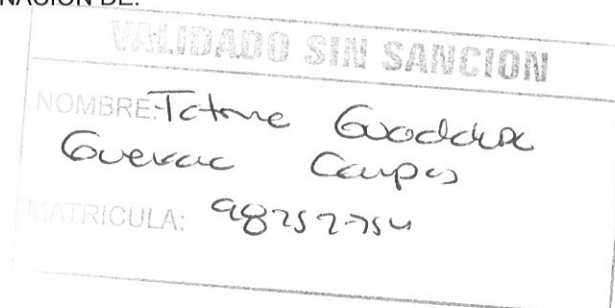 NACIÓN DE:
VALIDADO SIN SANCION
NOMBRE: Tatiane Guadalupe
Guevara Campos
MATRICULA: 98252754